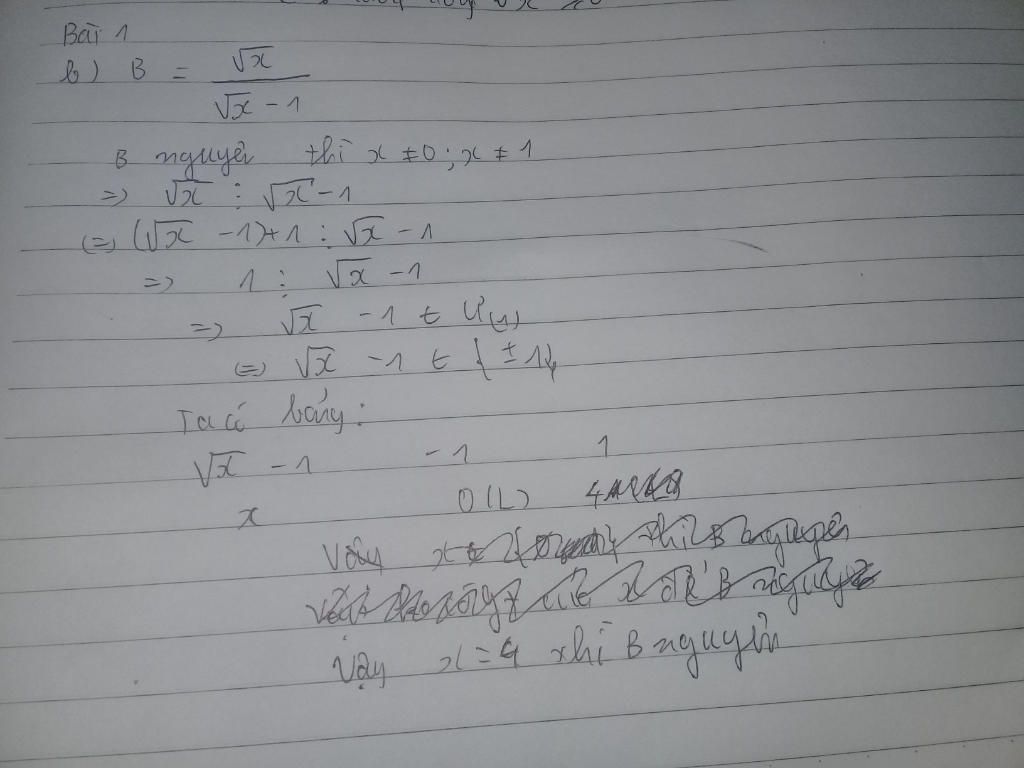 Bài 1
b) B = √x / (√x - 1)
B nguyên thì x ≠ 0 ; x ≠ 1
=> √x ⋮ √x - 1
(=) (√x - 1) + 1 ⋮ √x - 1
=> 1 ⋮ √x - 1
=> √x - 1 ∈ Ư(1)
(=) √x - 1 ∈ { ± 1}
Ta có bảng :
√x - 1 - 1 1
x 0 (L) 4
Vậy thì B nguyên
x để B nguyên
Vậy x = 4 thì B nguyên